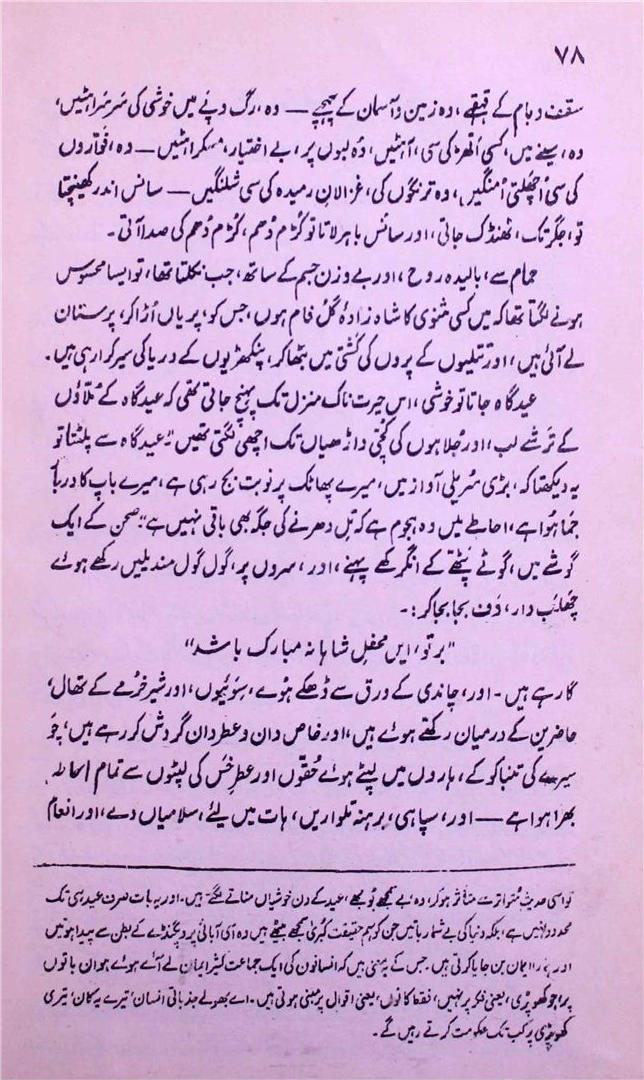 ۷۸
سقف و بام کے قہقہے، وہ زمین و آسمان کے چہچہے — وہ، رگ و پے میں خوشی کی سرسراہٹیں،
وہ، سینے میں، کسی الھڑ کی سی، آہٹیں، وہ لبوں پر، بے اختیار، مسکراہٹیں — وہ، فوّاروں
کی سی اُچھلتی اُمنگیں، وہ ترنگوں کی، غزالانِ رمیدہ کی سی شلنگیں — سانس اندر کھینچتا
تو، جگر تک، ٹھنڈک جاتی، اور سانس باہر لاتا تو کڑم دُھم، کڑم دُھم کی صدا آتی۔
حمام سے، بالیدہ روح، اور بے وزن جسم کے ساتھ، جب نکلتا تھا، تو ایسا محسوس
ہونے لگتا تھا کہ میں کسی مثنوی کا شاہ زادۂ گل فام ہوں، جس کو، پریاں اُڑا کر، پرستان
لے آئی ہیں، اور تتلیوں کے پروں کی کشتی میں بٹھا کر، پنکھڑیوں کے دریا کی سیر کرا رہی ہیں۔
عید گاہ جاتا تو خوشی، اس حیرت ناک منزل تک پہنچ جاتی تھی کہ عید گاہ کے مُلّاؤں
کے ترشے لب، اور جُلاہوں کی کھچی داڑھیاں تک اچھی لگتی تھیں" عید گاہ سے پلٹتا تو
یہ دیکھتا کہ، بڑی سُریلی آواز میں، میرے پھاٹک پر نوبت بج رہی ہے، میرے باپ کا دربار
جما ہوا ہے، احاطے میں وہ ہجوم ہے کہ تل دھرنے کی جگہ بھی باقی نہیں ہے" صحن کے ایک
گوشے میں، گوٹے پٹھے کے انگرکھے پہنے، اور، سروں پر، گول گول مندیلیں رکھے ہوئے
دار، دف بجا بجا کر:۔
"بر تو، ایں محفلِ شاہانہ مبارک باشد"
گا رہے ہیں۔ اور، چاندی کے ورق سے ڈھکے ہوئے، سوئیوں، اور شیر خرمے کے تھال،
حاضرین کے درمیان رکھے ہوئے ہیں، اور خاص دان و عطر دان گردش کر رہے ہیں، چو
سیرے کی تنباکو کے، ہاروں میں لپٹے ہوئے حقوں اور عطرِ خس کی لپٹوں سے تمام احاطہ
بھرا ہوا ہے — اور، سپاہی، برہنہ تلواریں، ہات میں لیے، سلامیاں دے، اور انعام
تو اسی حدیثِ متواتر سے متاثر ہو کر، وہ بے سمجھے بوجھے، عید کے دن خوشیاں منانے لگتے ہیں۔ اور یہ بات صرف عید ہی تک
محدود نہیں ہے، بلکہ دنیا کی بے شمار باتیں جن کو ہم حقیقتِ کبریٰ سمجھے بیٹھے ہیں وہ اسی آبائی پروپگنڈے کے بطن سے پیدا ہوتیں
اور ہمارا ایمان بن جایا کرتی ہیں۔ جس کے یہ معنی ہیں کہ انسانوں کی ایک جماعتِ کثیر ایمان لے آئے ہوئے ہو ان باتوں
پر، جو کھوپڑی، یعنی فکر پر نہیں، فقط کانوں، یعنی اقوال پر مبنی ہوتی ہیں۔ اے بھولے جذباتی انسان، تیرے یہ کان، تیری
کھوپڑی پر کب تک حکومت کرتے رہیں گے۔